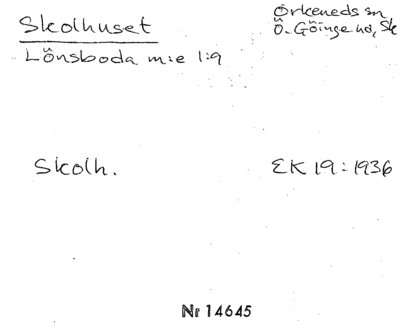 Skolhuset
Örkeneds sn
Ö. Göinge hd, Sk
Lönsboda m:e 1:9
Skolh.
EK 19:1936
Nr 14645